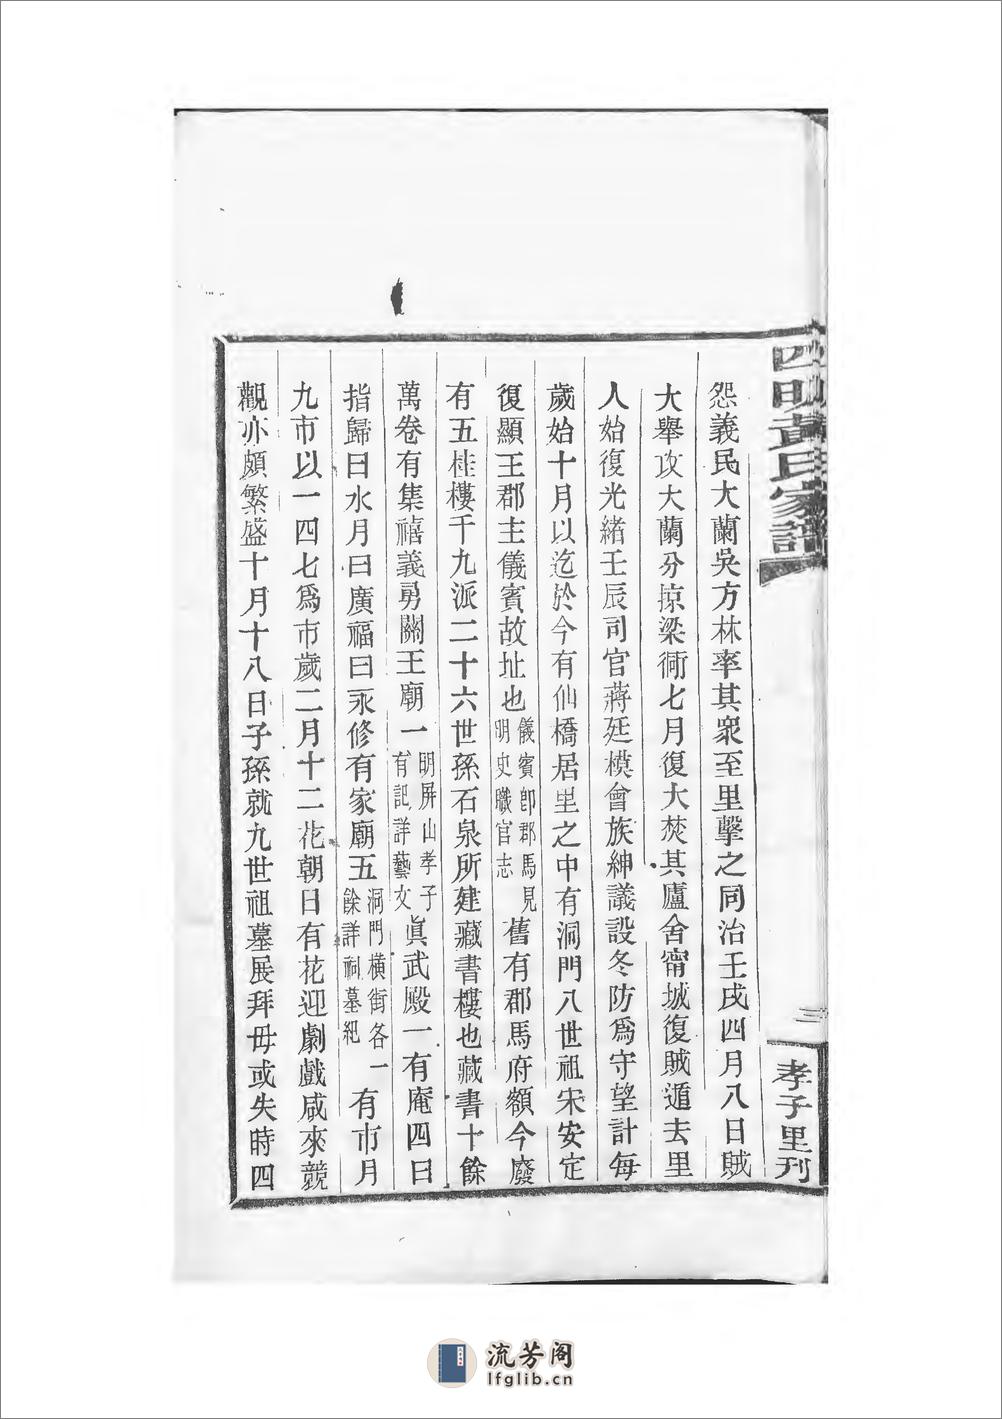 四明黃氏家譜
三
孝子里刋
怨義民大蘭吳方林率其衆至里擊之同治壬戌四月八日賊
大舉攻大蘭分掠梁衕七月復大焚其廬舍甯城復賊遁去里
人始復光緒壬辰司官蔣廷模會族紳議設冬防爲守望計每
歲始十月以迄於今有仙橋居里之中有洞門八世祖宋安定
復顯王郡主儀賓故址也儀賓卽郡馬見明史職官志舊有郡馬府額今廢
有五桂樓千九派二十六世孫石泉所建藏書樓也藏書十餘
萬卷有集禧義勇關王廟一明屏山孝子有記詳藝文眞武殿一有庵四曰
指歸曰水月曰廣福曰永修有家廟五洞門橫街各一餘詳祠墓紀有市月
九市以一四七爲市歲二月十二花朝日有花迎劇戲咸來競
觀亦頗繁盛十月十八日子孫就九世祖墓展拜毋或失時四
流芳阁
lfglib.cn